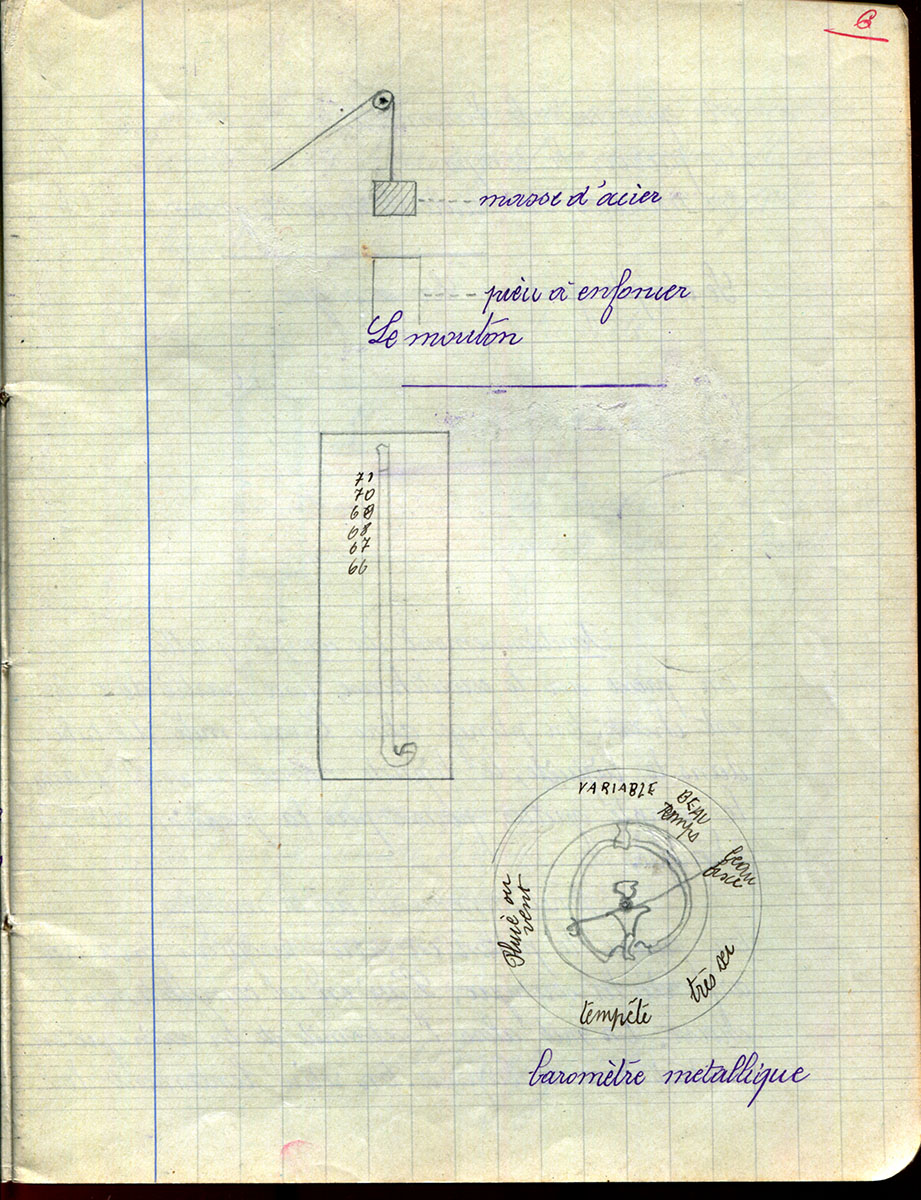 B
masse d'acier
pieu à enfoncer
Le mouton
71
70
69
68
67
66
VARIABLE
BEAU
Temps
beau
fixe
Pluie ou
vent
très sec
tempête
baromètre métallique